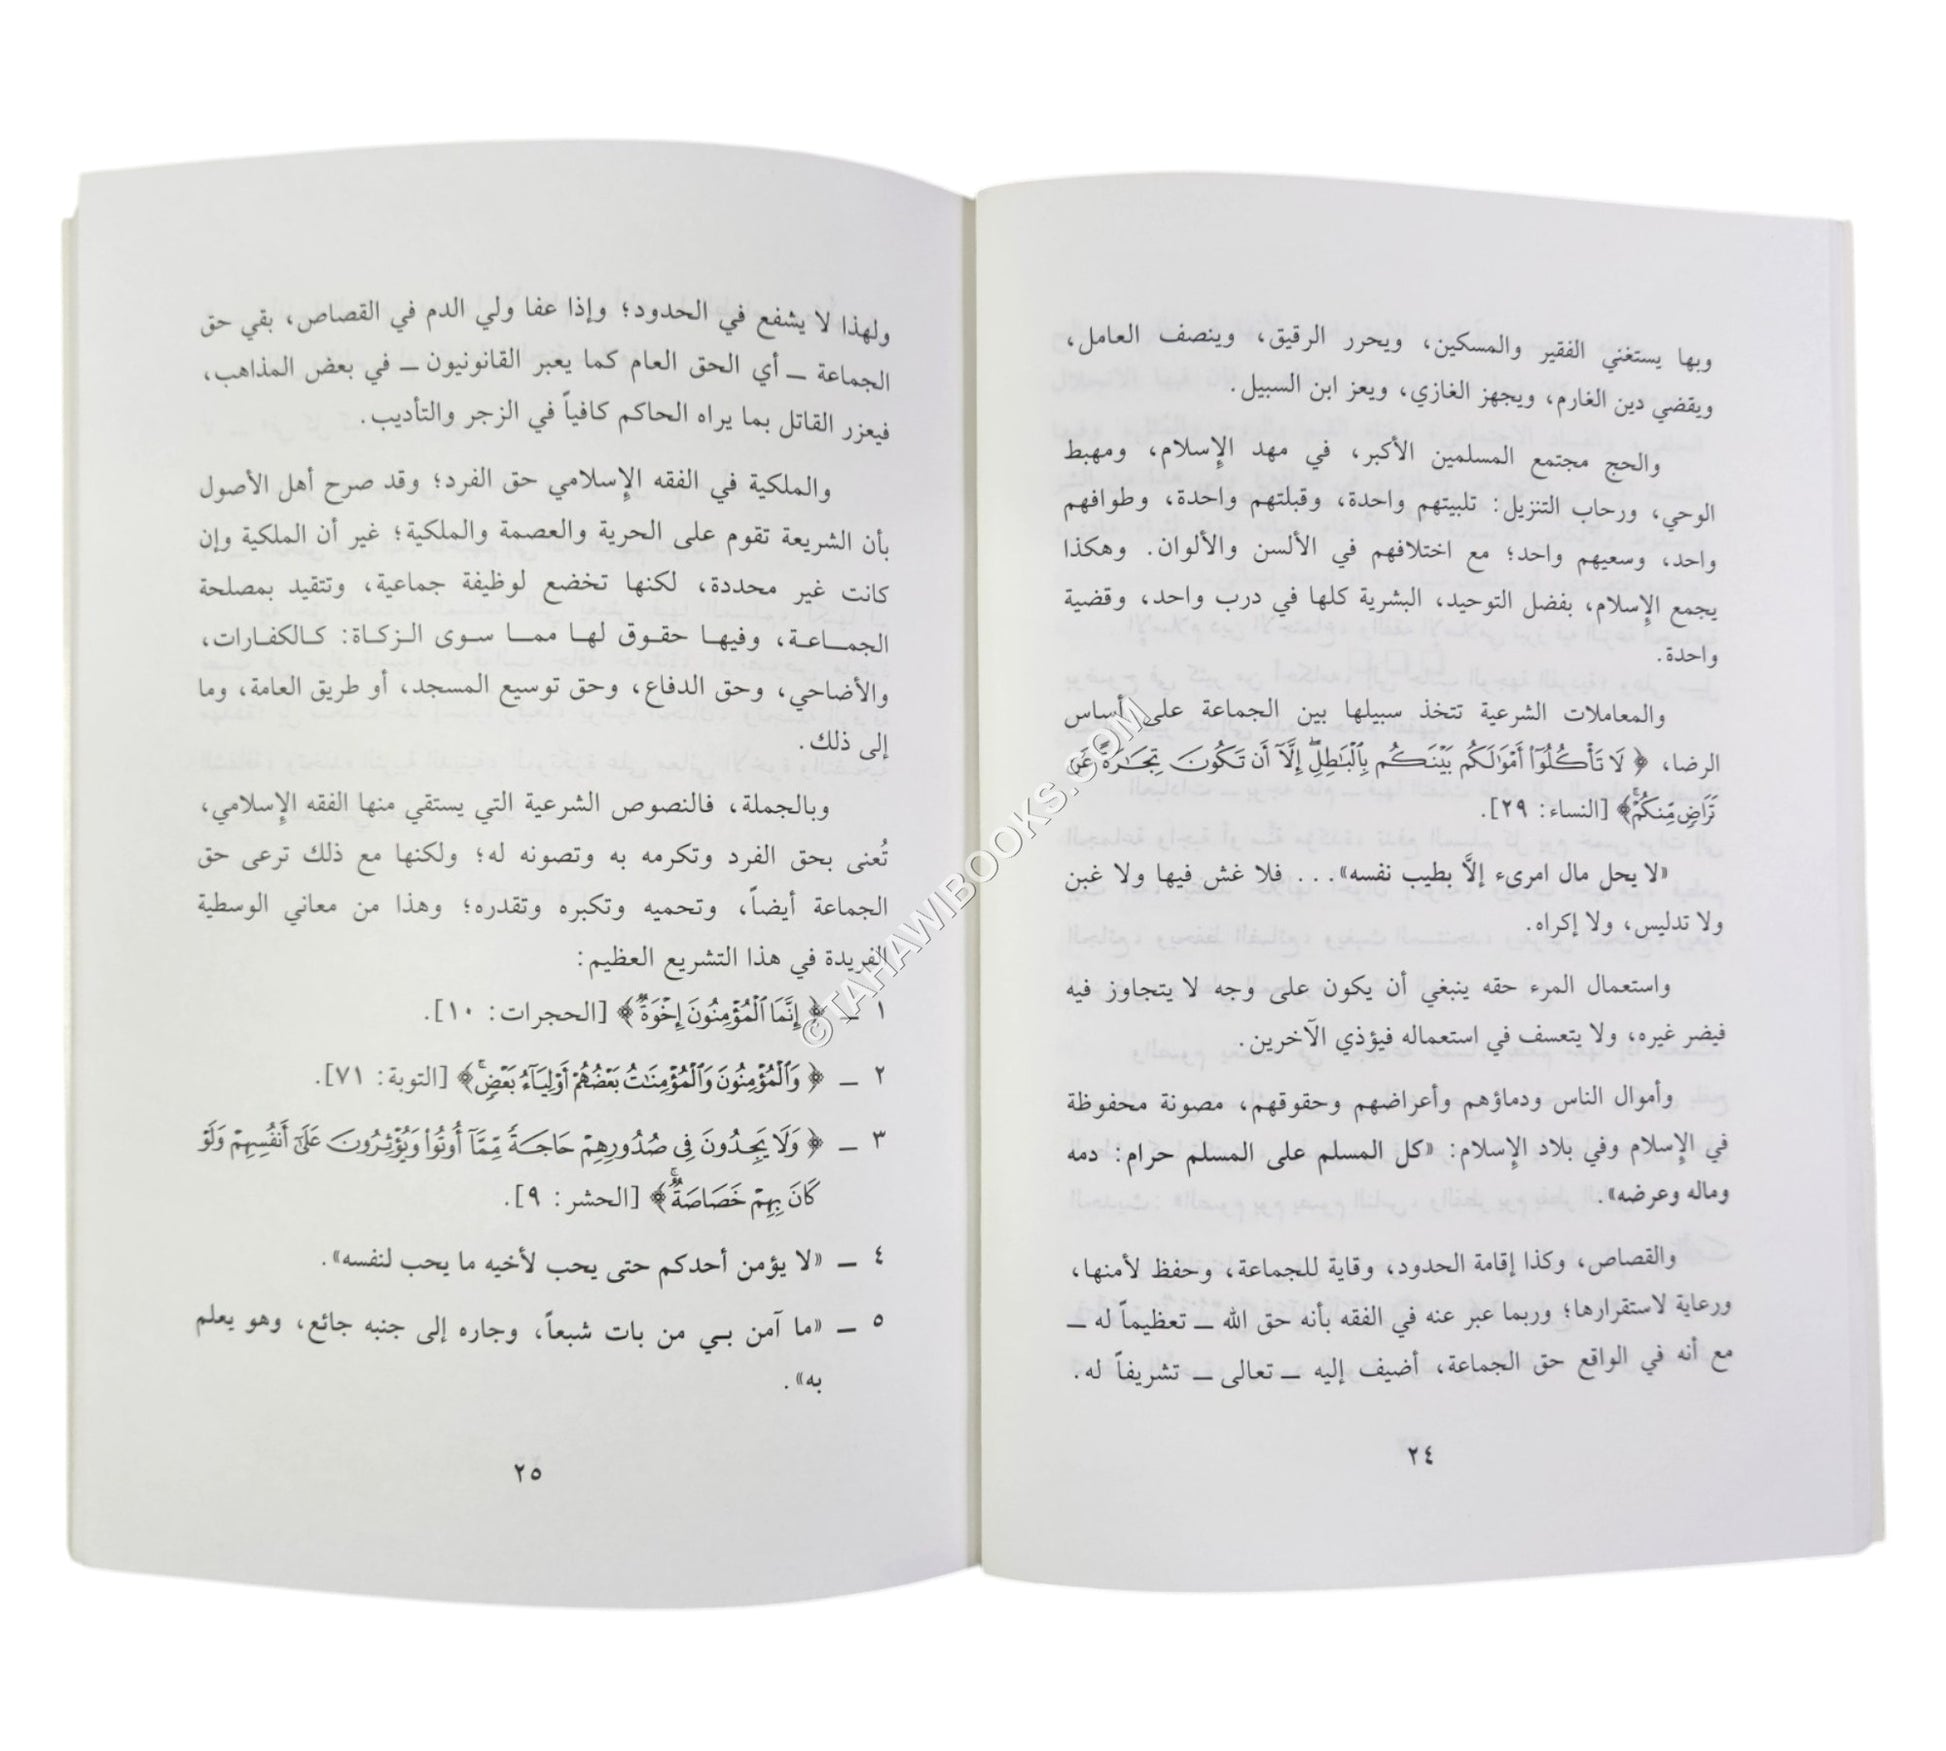 وبها يستغني الفقير والمسكين، ويحرر الرقيق، وينصف العامل،
ويقضي دين الغارم، ويجهز الغازي، ويعز ابن السبيل.
والحج مجتمع المسلمين الأكبر، في مهد الإسلام، ومهبط
الوحي، ورحاب التنزيل: تلبيتهم واحدة، وقبلتهم واحدة، وطوافهم
واحد، وسعيهم واحد؛ مع اختلافهم في الألسن والألوان. وهكذا
يجمع الإسلام، بفضل التوحيد، البشرية كلها في درب واحد، وقضية
واحدة.
والمعاملات الشرعية تتخذ سبيلها بين الجماعة على أساس
الرضا، ﴿لَا تَأْكُلُوٓا۟ أَمْوَٰلَكُم بَيْنَكُم بِٱلْبَٰطِلِ إِلَّآ أَن تَكُونَ تِجَٰرَةً عَن
تَرَاضٍ مِّنكُمْ﴾ [النساء: ٢٩].
«لا يحل مال امرىء إلَّا بطيب نفسه»... فلا غش فيها ولا غبن
ولا تدليس، ولا إكراه.
واستعمال المرء حقه ينبغي أن يكون على وجه لا يتجاوز فيه
فيضر غيره، ولا يتعسف في استعماله فيؤذي الآخرين.
وأموال الناس ودماؤهم وأعراضهم وحقوقهم، مصونة محفوظة
في الإسلام وفي بلاد الإسلام: «كل المسلم على المسلم حرام: دمه
وماله وعرضه».
والقصاص، وكذا إقامة الحدود، وقاية للجماعة، وحفظ لأمنها،
ورعاية لاستقرارها؛ وربما عبر عنه في الفقه بأنه حق الله ــ تعظيماً له ــ
مع أنه في الواقع حق الجماعة، أضيف إليه ــ تعالى ــ تشريفاً له.
٢٤
ولهذا لا يشفع في الحدود؛ وإذا عفا ولي الدم في القصاص، بقي حق
الجماعة ــ أي الحق العام كما يعبر القانونيون ــ في بعض المذاهب،
فيعزر القاتل بما يراه الحاكم كافياً في الزجر والتأديب.
والملكية في الفقه الإسلامي حق الفرد؛ وقد صرح أهل الأصول
بأن الشريعة تقوم على الحرية والعصمة والملكية؛ غير أن الملكية وإن
كانت غير محددة، لكنها تخضع لوظيفة جماعية، وتتقيد بمصلحة
الجمـاعـة، وفيهـا حقـوق لهـا ممـا سـوى الـزكـاة: كـالكفـارات،
والأضاحي، وحق الدفاع، وحق توسيع المسجد، أو طريق العامة، وما
إلى ذلك.
وبالجملة، فالنصوص الشرعية التي يستقي منها الفقه الإسلامي،
تُعنى بحق الفرد وتكرمه به وتصونه له؛ ولكنها مع ذلك ترعى حق
الجماعة أيضاً، وتحميه وتكبره وتقدره؛ وهذا من معاني الوسطية
الفريدة في هذا التشريع العظيم:
١ ــ ﴿إِنَّمَا ٱلْمُؤْمِنُونَ إِخْوَةٌ﴾ [الحجرات: ١٠].
٢ ــ ﴿وَٱلْمُؤْمِنُونَ وَٱلْمُؤْمِنَٰتُ بَعْضُهُمْ أَوْلِيَآءُ بَعْضٍ﴾ [التوبة: ٧١].
٣ ــ ﴿وَلَا يَجِدُونَ فِى صُدُورِهِمْ حَاجَةً مِّمَّآ أُوتُوا۟ وَيُؤْثِرُونَ عَلَىٰٓ أَنفُسِهِمْ وَلَوْ
كَانَ بِهِمْ خَصَاصَةٌ﴾ [الحشر: ٩].
٤ ــ «لا يؤمن أحدكم حتى يحب لأخيه ما يحب لنفسه».
٥ ــ «ما آمن بـي من بات شبعاً، وجاره إلى جنبه جائع، وهو يعلم
به».
٢٥
©TAHAWIBOOKS.COM